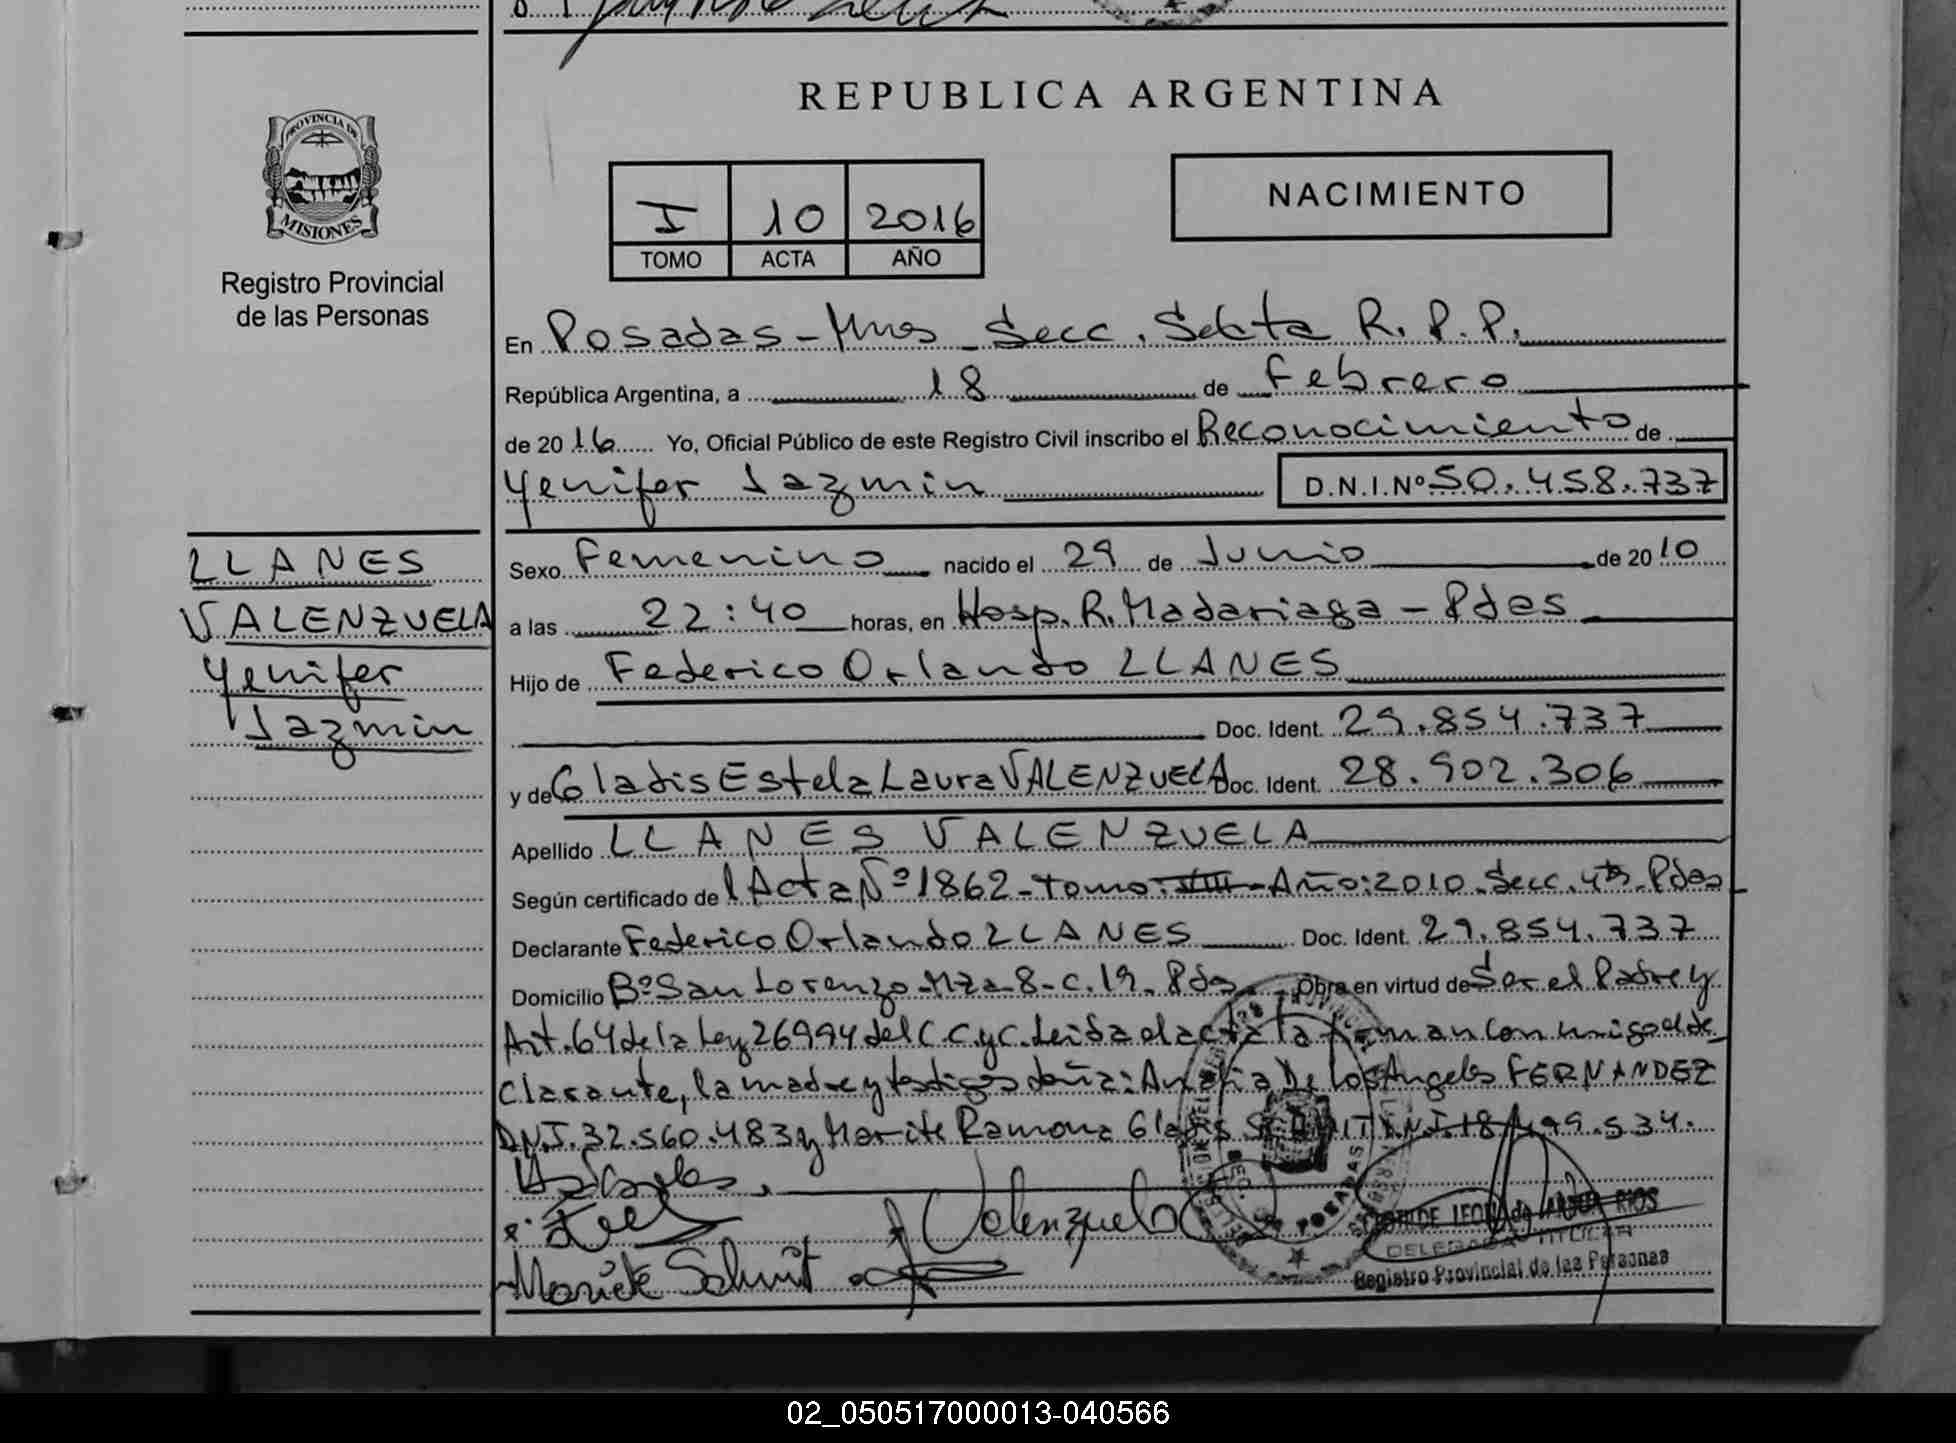 REPUBLICA ARGENTINA
PROVINCIA DE
MISIONES
Registro Provincial
de las Personas
I 10 2016
TOMO ACTA AÑO
NACIMIENTO
En Posadas - Mnes - Secc. Sexta R. P. P.
República Argentina, a 18 de Febrero
de 2016 Yo, Oficial Público de este Registro Civil inscribo el Reconocimiento de
Yenifer Jazmin D.N.I.Nº 50.458.737
LLANES
VALENZUELA
Yenifer
Jazmin
Sexo Femenino nacido el 29 de Junio de 2010
a las 22:40 horas, en Hosp. R. Madariaga - Pdas
Hijo de Federico Orlando LLANES
Doc. Ident. 29.854.737
y de Gladis Estela Laura VALENZUELA Doc. Ident. 28.902.306
Apellido LLANES VALENZUELA
Según certificado del Acta Nº 1862 - Tomo: VIII - Año: 2010 - Secc. 4ta - Pdas
Declarante Federico Orlando LLANES Doc. Ident. 29.854.737
Domicilio Bº San Lorenzo - Mza - 8 - C. 19 - Pdas Obra en virtud de Ser el Padre y
Art. 64 de la Ley 26994 del C.C.yC. Leida el acta la firman conmigo el de
clarante, la madre y testigos doña: Analia De Los Angeles FERNANDEZ
D.N.I. 32.560.483 y Marite Ramona Gladis SCHMIT D.N.I. 18.499.534.
Valenzuela
Marite Schmit
POSADAS
RIOS
DELEGADA TITULAR
Registro Provincial de las Personas
02_050517000013-040566